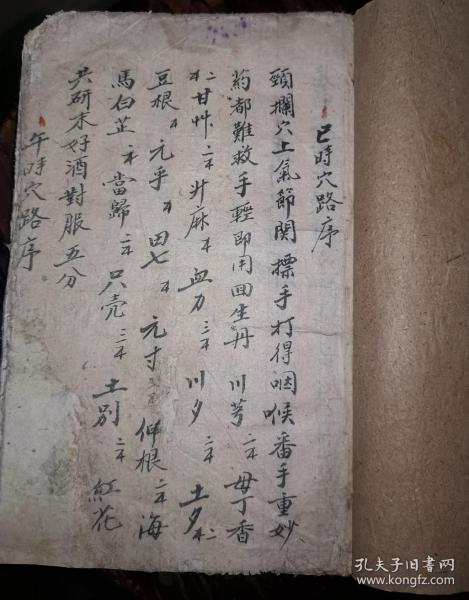 巳時穴路序
頸欄穴上氣節関擽手打得咽喉番手重妙
药都難救手輕即用回生丹 川芎二木 母丁香
二木 甘艸二木 升麻木 血力三木 川夕二木 土夕木二
豆根木 元乎木 田七木 元寸 仲根二木 海
馬白芷木 當歸二木 只壳三木 土别二木 紅花
共研末好酒對服五分
午時穴路序
孔夫子旧书网
www.kongfz.com